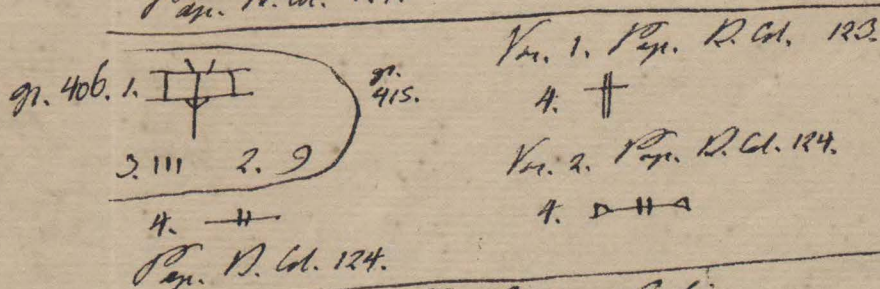 Pap. D. Col. 124.
gr. 406. 1.
gr. 415.
3. III 2. 9
4.
Pap. D. Col. 124.
Var. 1. Pap. D. Col. 123.
4.
Var. 2. Pap. D. Col. 124.
4.